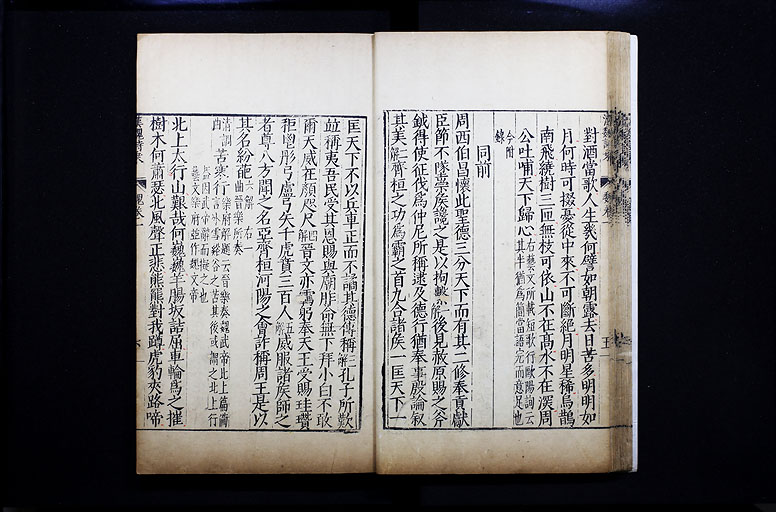 對酒當歌人生幾何譬如朝露去日苦多明明如
月何時可掇憂從中來不可斷絕月明星稀烏鵲
南飛繞樹三匝無枝可依山不在高水不在深周
公吐哺天下歸心右藝文所載短歌行歐陽詢云其半猶為簡當語完而意足也
今附錄
同前
周西伯昌懷此聖德三分天下而有其二修奉貢獻
臣節不墜崇侯讒之是以拘繫一解後見放原賜之斧
鉞得使征伐為仲尼所稱逮及德行猶奉事殷論敘
其美二解齊桓之功為霸之首九合諸侯一匡天下一
匡天下不以兵車正而不譎其德傳稱三解孔子所歎
並稱夷吾民受其恩賜與廟胙命無下拜小白不敢
爾天威在顏咫尺四解晉文亦霸躬奉天王受賜珪瓚
秬鬯彤弓盧弓矢千虎賁三百人五解威服諸侯師之
者尊八方聞之名亞齊桓河陽之會詐稱周王是以
其名紛葩六解右一曲晉樂所奏
苦寒行
北上太行山艱哉何巍巍羊腸坂詰屈車輪為之摧
樹木何蕭瑟北風聲正悲熊羆對我蹲虎豹夾路啼